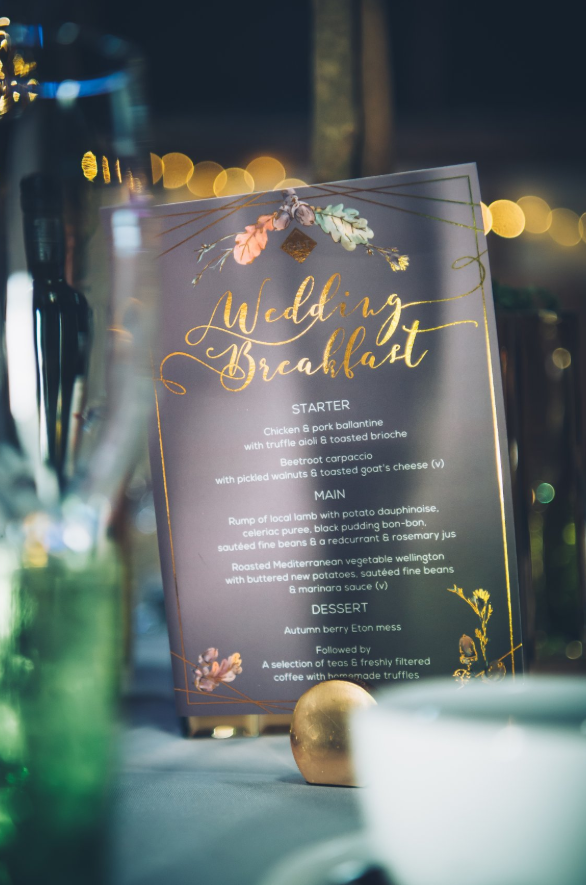 Wedding
Breakfast
STARTER
Chicken & pork ballantine
with truffle aioli & toasted brioche
Beetroot carpaccio
with pickled walnuts & toasted goat's cheese (v)
MAIN
Rump of local lamb with potato dauphinoise,
celeriac puree, black pudding bon-bon,
sautéed fine beans & a redcurrant & rosemary jus
Roasted Mediterranean vegetable wellington
with buttered new potatoes, sautéed fine beans
& marinara sauce (v)
DESSERT
Autumn berry Eton mess
Followed by
A selection of teas & freshly filtered
coffee with homemade truffles